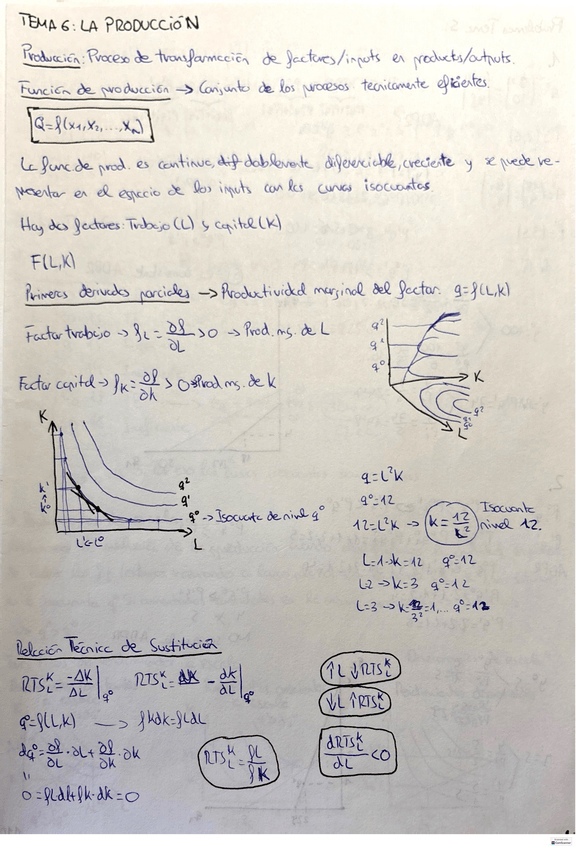 TEMA 6: LA PRODUCCIÓN
Producción: Proceso de transformación de factores/inputs en products/outputs.
Función de producción → Conjunto de los procesos tecnicamente eficientes.
Q=f(x1,x2,...,xN)
La func. de prod. es continua, doblemente diferenciable, creciente y se puede re-
presentar en el espacio de los inputs con las curvas isocuantas
Hay dos factores: Trabajo (L) y capital (K)
F(L,K)
Primeras derivadas parciales → Productividad marginal del factor. q=f(L,K)
Factor trabajo → fL = ∂f/∂L >0 → Prod. mg. de L
Factor capital → fK = ∂f/∂K >0 → Prod mg. de K
q²
q¹
q⁰
K
q²
L
K
K¹
K⁰
q²
q¹
q⁰ → Isocuanta de nivel q⁰
L
q=L²K
q⁰=12
12=L²K → K=12/L² Isocuanta nivel 12.
L=1→K=12 q⁰=12
L=2 →K=3 q⁰=12
L=3 →K=12/3²=1,... q⁰=12
Relación Técnica de Sustitución
RTS_L^K = -ΔK/ΔL |q⁰ RTS_L^K = - dK/dL |q⁰
q⁰=f(L,K) → fKdK=fLdL
dq⁰ = ∂f/∂L · ∂L + ∂f/∂K · ∂K
"
0=fLdL+fK·dK=0
RTS_L^K = fL/fK
↑L ↓RTS_L^K
↓L ↑RTS_L^K
dRTS_L^K/dL <0